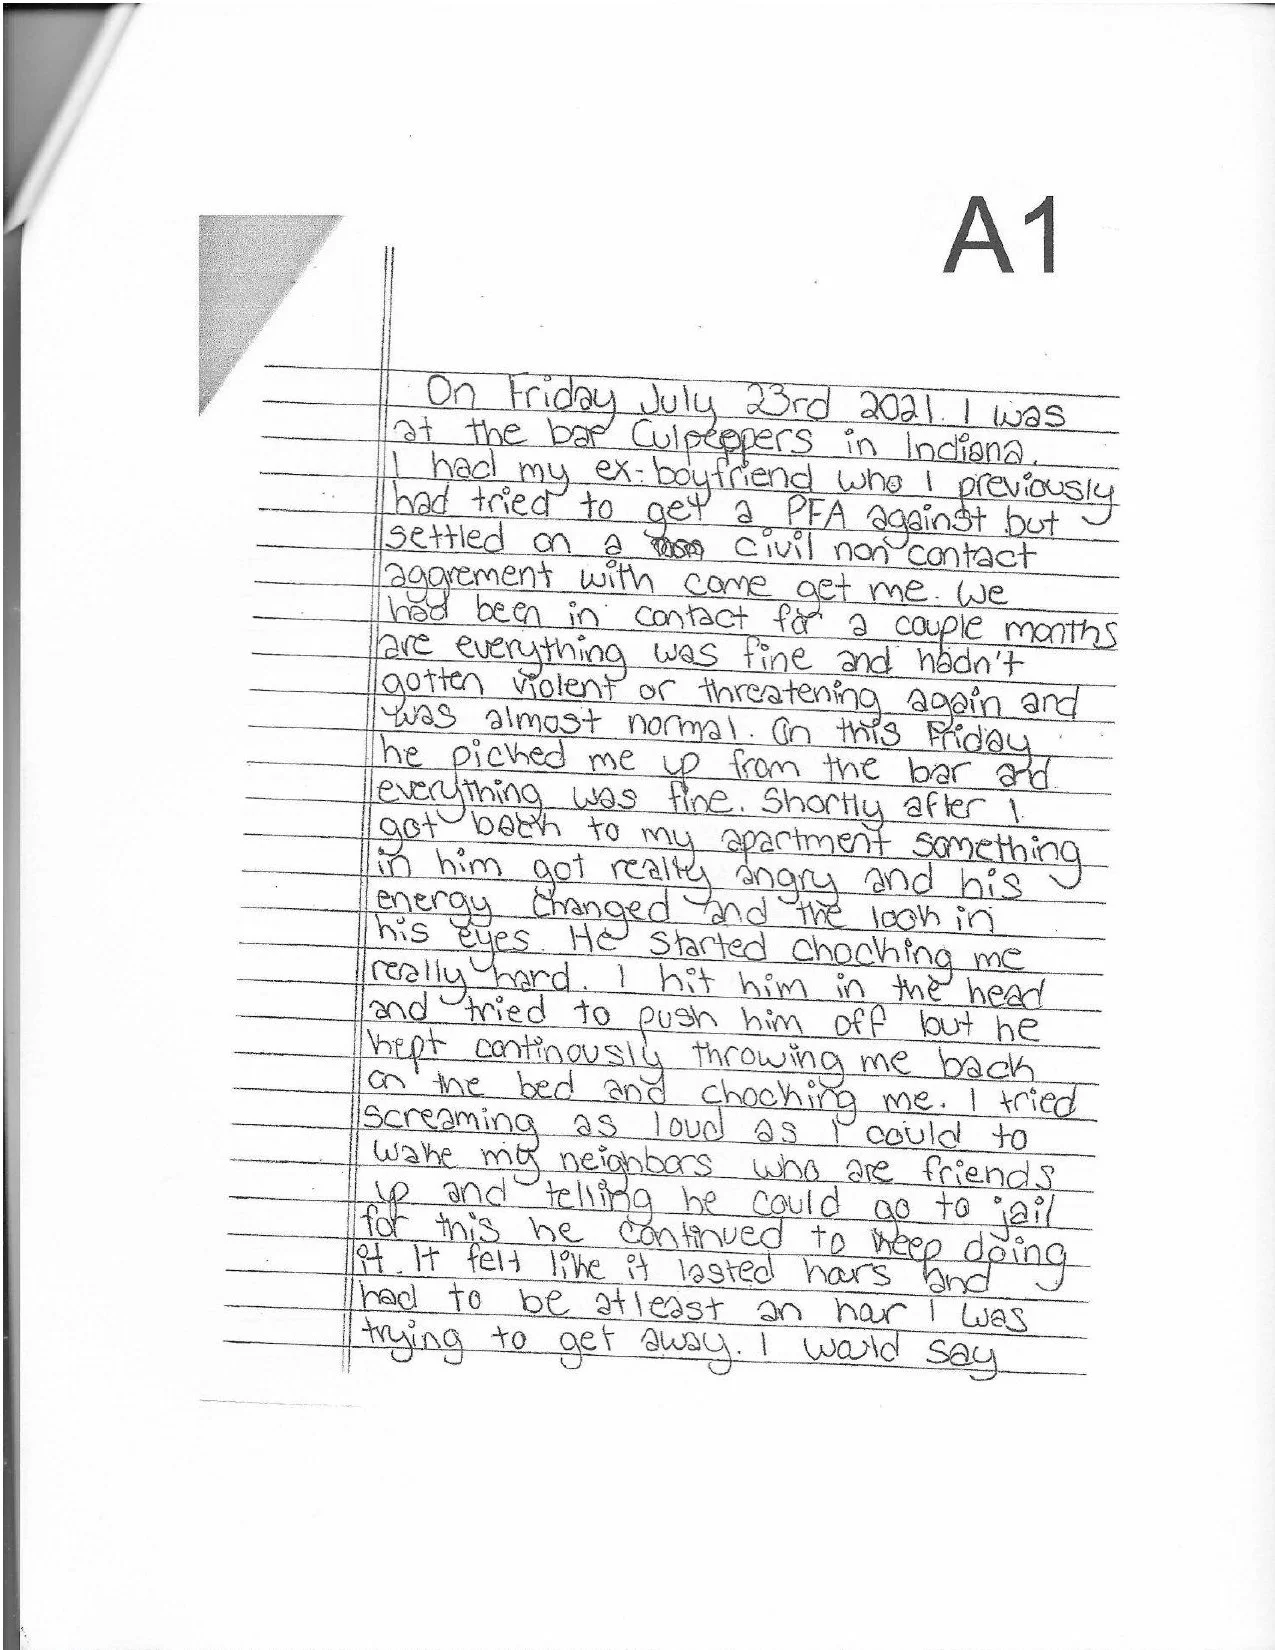 A1
On Friday July 23rd 2021. I was
at the bar Culpeppers in Indiana.
I had my ex-boyfriend who I previously
had tried to get a PFA against but
settled on a civil non contact
aggrement with come get me. We
had been in contact for a couple months
are everything was fine and hadn't
gotten violent or threatening again and
was almost normal. On this Friday
he picked me up from the bar and
everything was fine. Shortly after I
got back to my apartment something
in him got really angry and his
energy changed and the look in
his eyes. He started chocking me
really hard. I hit him in the head
and tried to push him off but he
kept continously throwing me back
on the bed and chocking me. I tried
screaming as loud as I could to
wake my neighbors who are friends
up and telling he could go to jail
for this he continued to keep doing
it. It felt like it lasted hours and
had to be atleast an hour I was
trying to get away. I would say